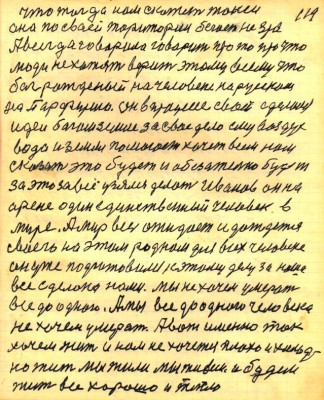 что тогда нам скажет такси 119
она по своей територии бегает не зря
Я всегда говорил и говорит про то про что
люди не хотят верит этому всему что
бог рожденый на человека на русском
на Парфирию. Он
идеи богом земле за свое дело ему воздух
вода и земля помогает хочет всем нам
сказат это будет и обязательно будет
за это за всё взялся делат Иванов он на
арене один единственный человек в
мире. А мир весь ожидает и дождется
своего на этом родном для всех человеке
он уже подготовился к этому делу за нами
все сделано нами. мы не хочем умират
все до одного. А мы все до одного человека
не хочем умират. А вот именно так
хочем жит и нам не хочется плохо и холод-
но жит мы жили мы живем и будем
жит все хорошо и тепло